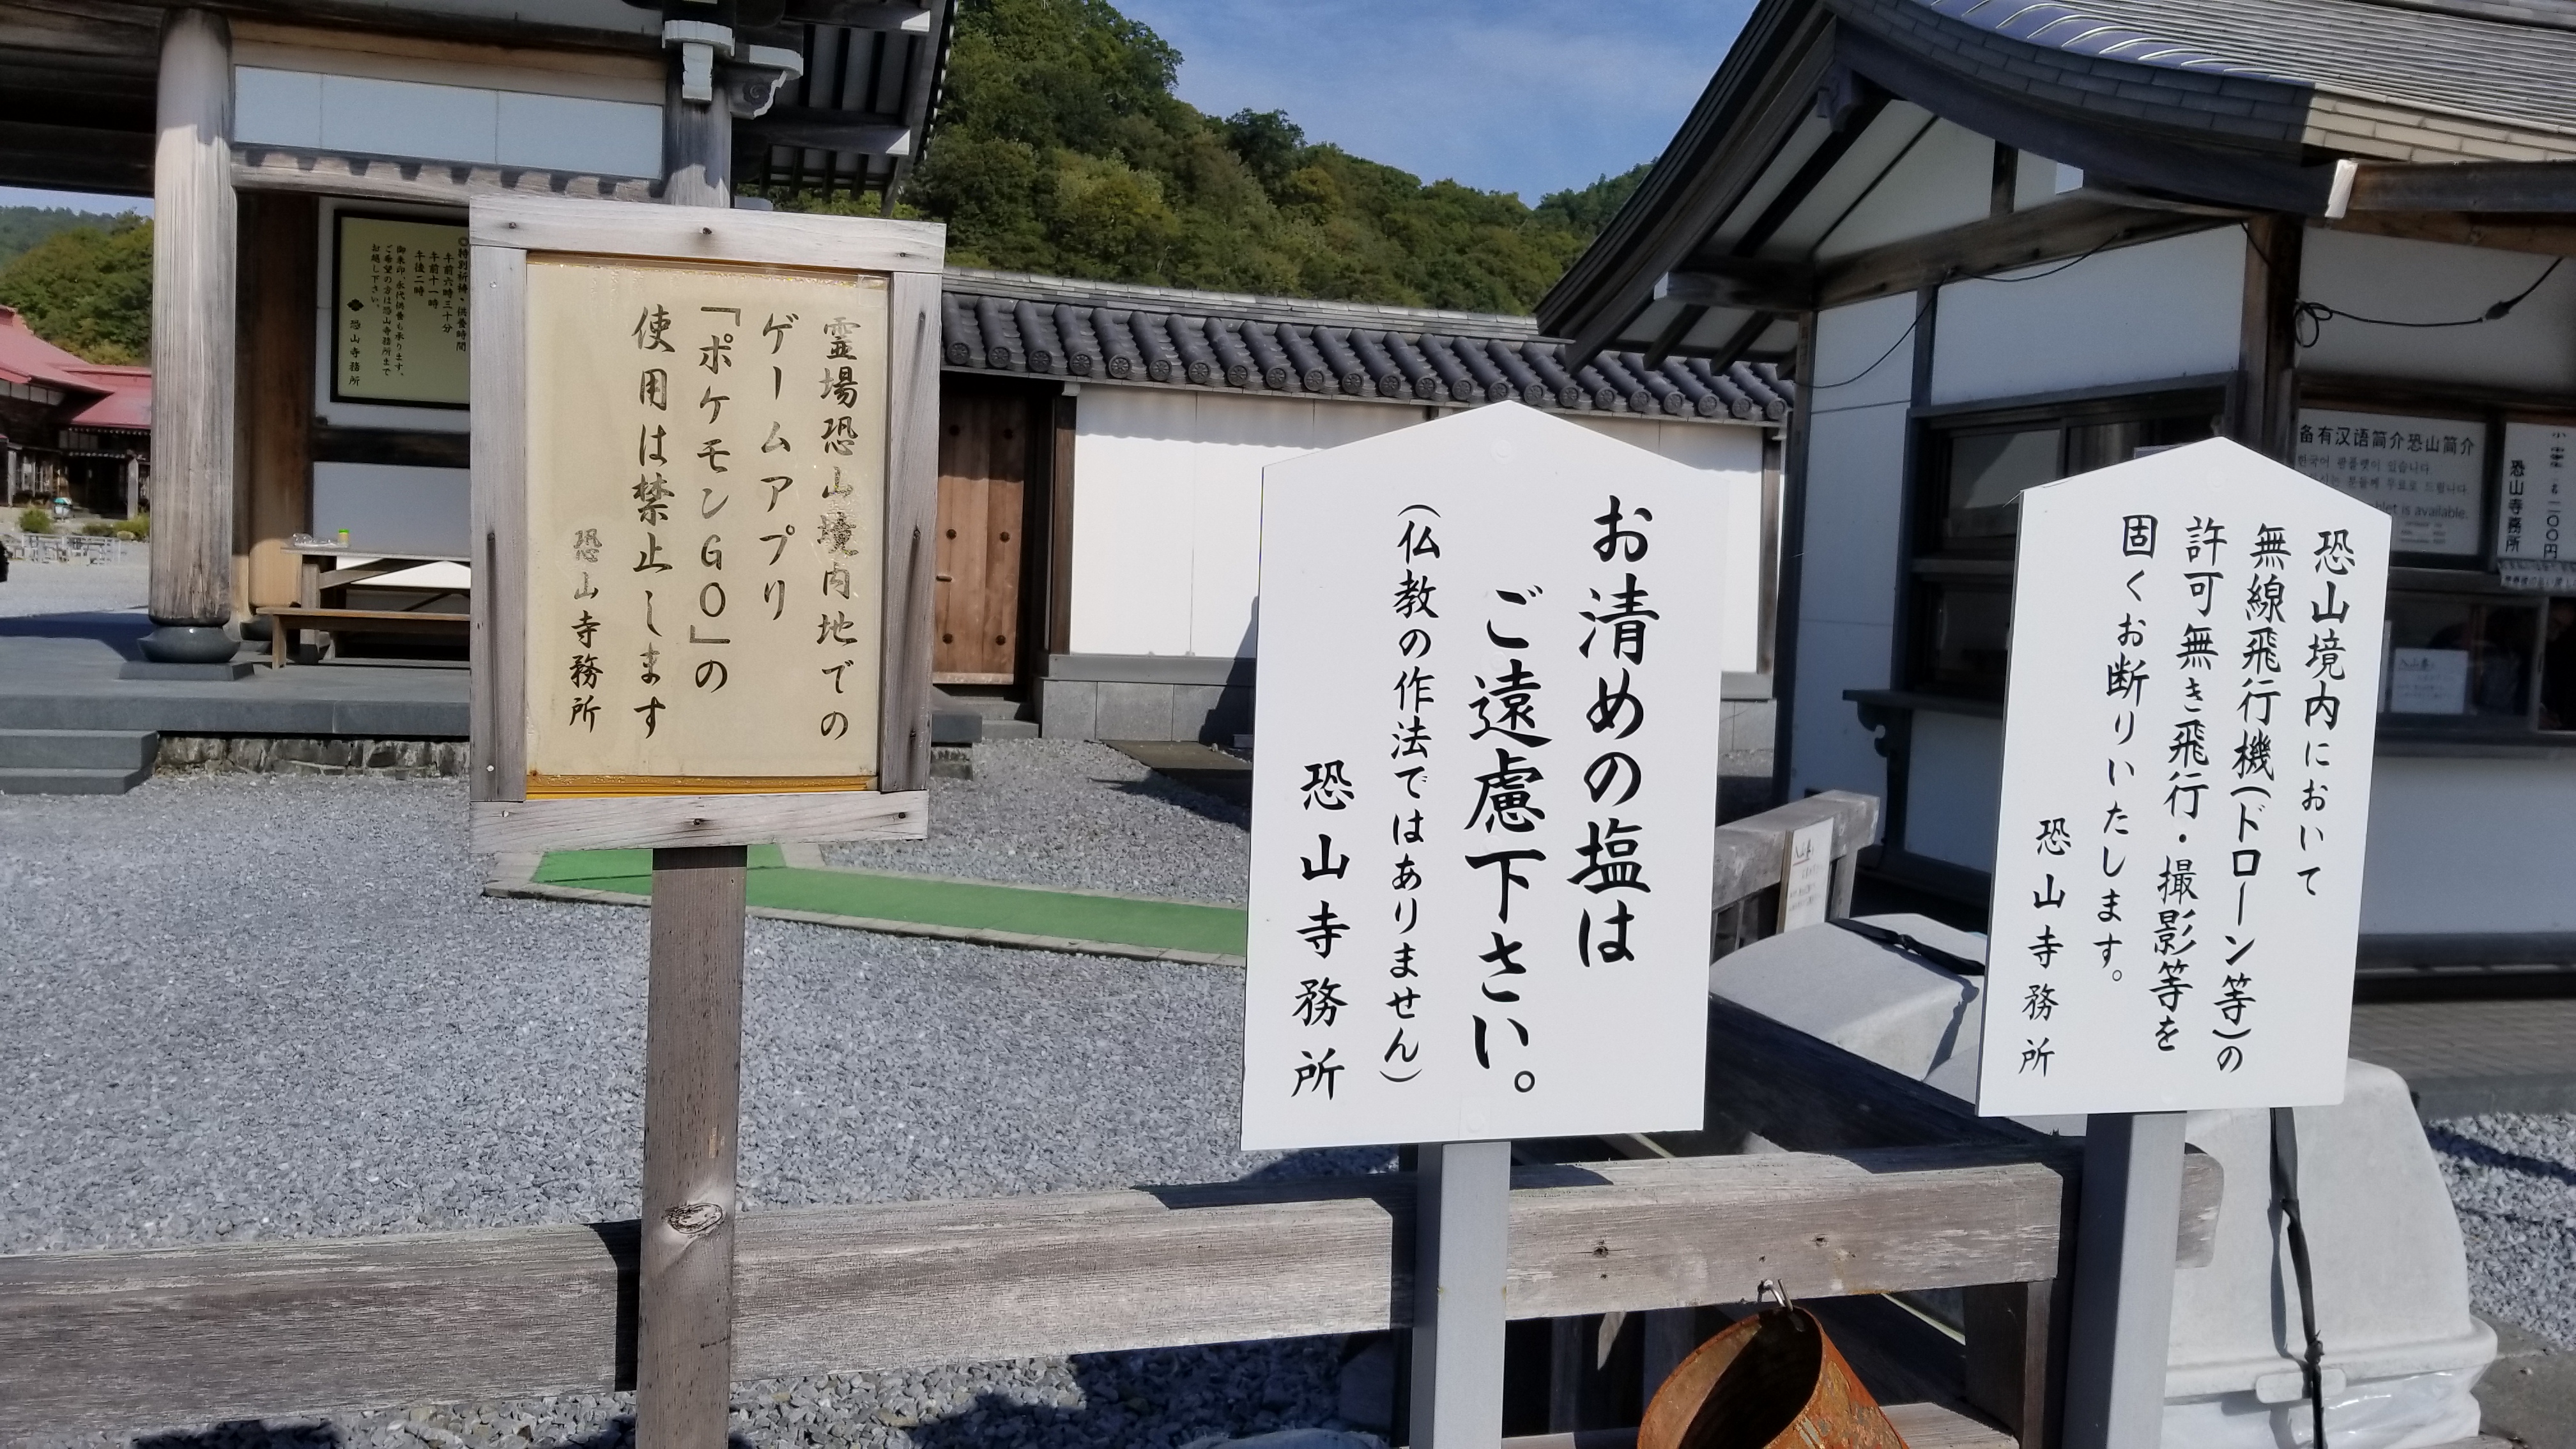 霊場恐山境内地での
ゲームアプリ
「ポケモンGO」の
使用は禁止します
恐山寺務所
お清めの塩は
ご遠慮下さい。
(仏教の作法ではありません)
恐山寺務所
恐山境内において
無線飛行機(ドローン等)の
許可無き飛行・撮影等を
固くお断りいたします。
恐山寺務所
◎特別祈祷・供養時間
午前六時三十分
午前十一時
午後二時
御朱印、永代供養も承ります。
ご希望の方は恐山寺務所まで
お越し下さい。
恐山寺務所
备有汉语简介恐山简介
한국어 팜플렛이 있습니다.
분들께 무료로 드립니다.
is available.
二〇〇円
恐山寺務所